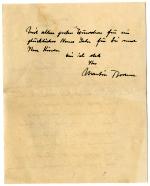 Mit allen guten Wünschen für ein
glückliches Neues Jahr für Sie und
Ihre Kinder
bin ich stets
Ihr